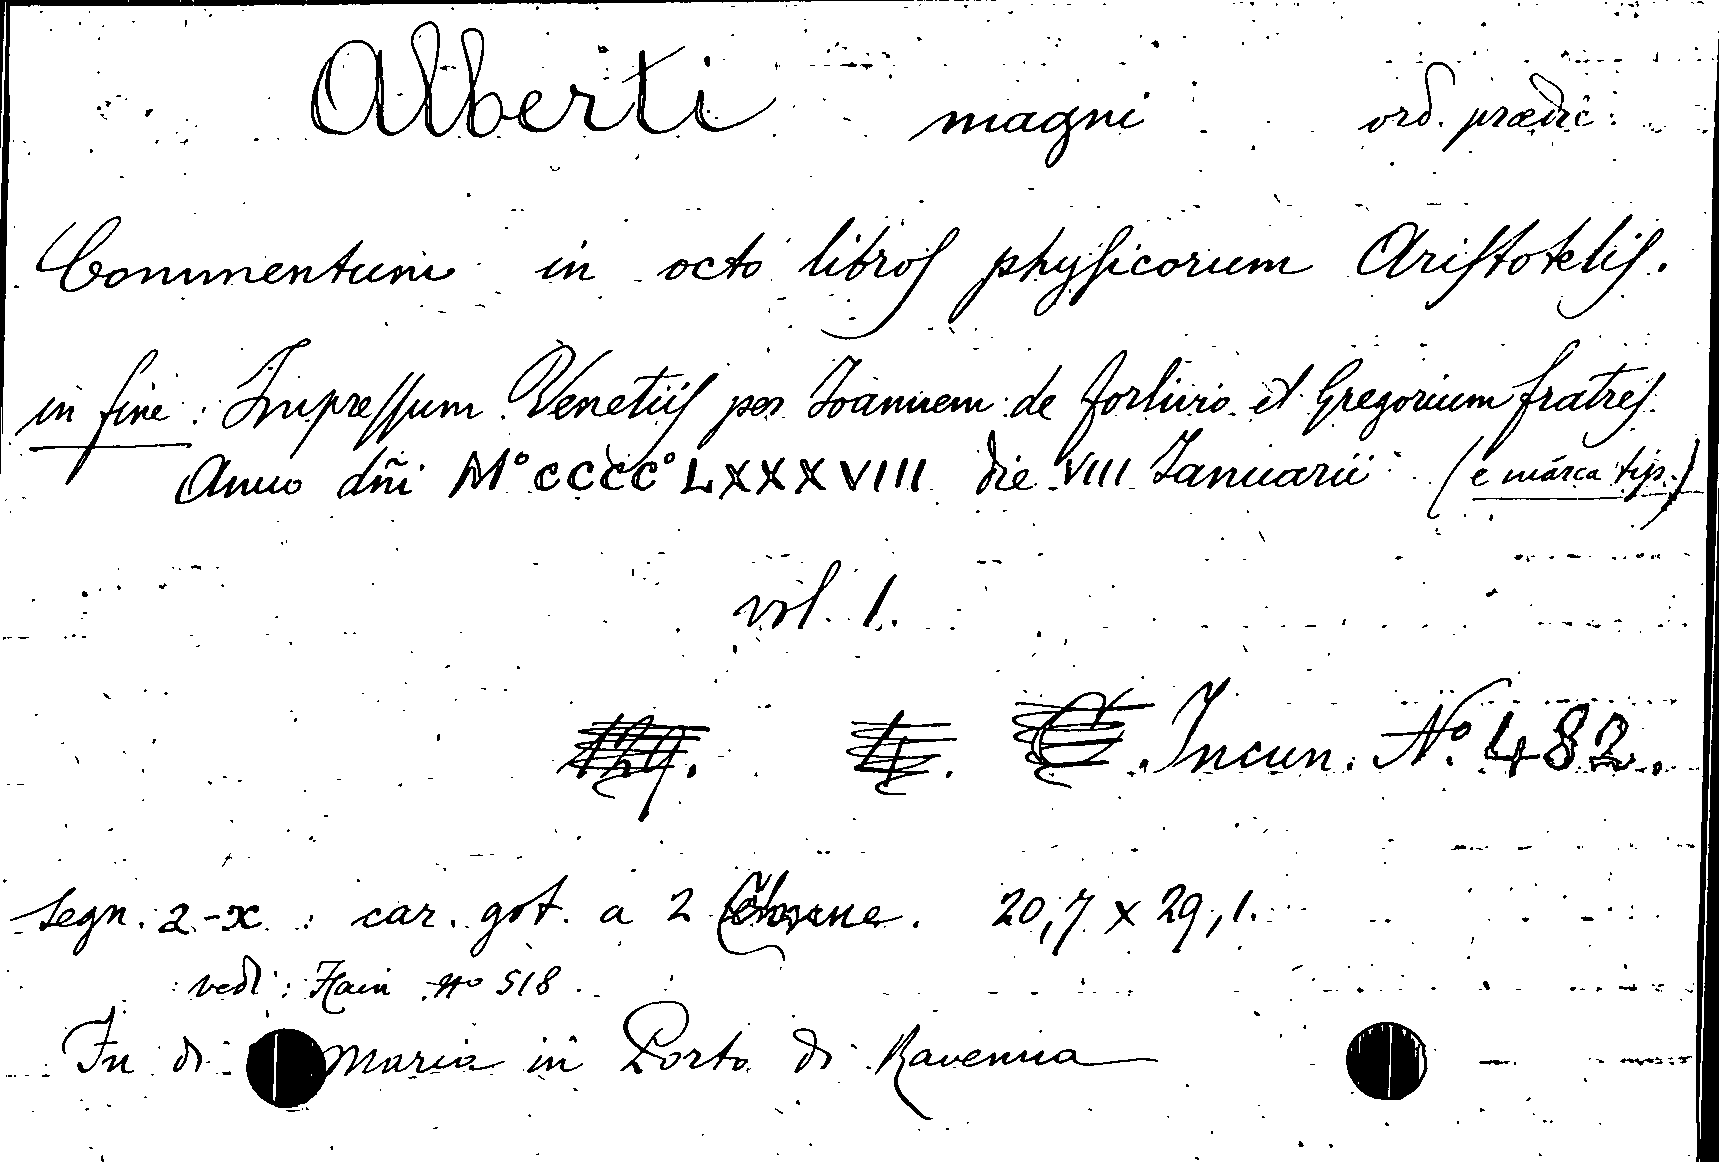 Alberti magni ord. prædic.
Commentum in octo libros physicorum Aristotelis.
in fine: Impressum Venetiis per Ioannem de forlivio et Gregorium fratres.
Anno dñi M° CCCC° LXXXVIII die VIII Ianuarii (e marca tip.)
vol. 1.
Incun. N° 482.
segn. a-x : car. got. a 2 Colonne. 20,7 x 29,1.
vedi: Hain N° 518.
Fu di Maria in Porto di Ravenna